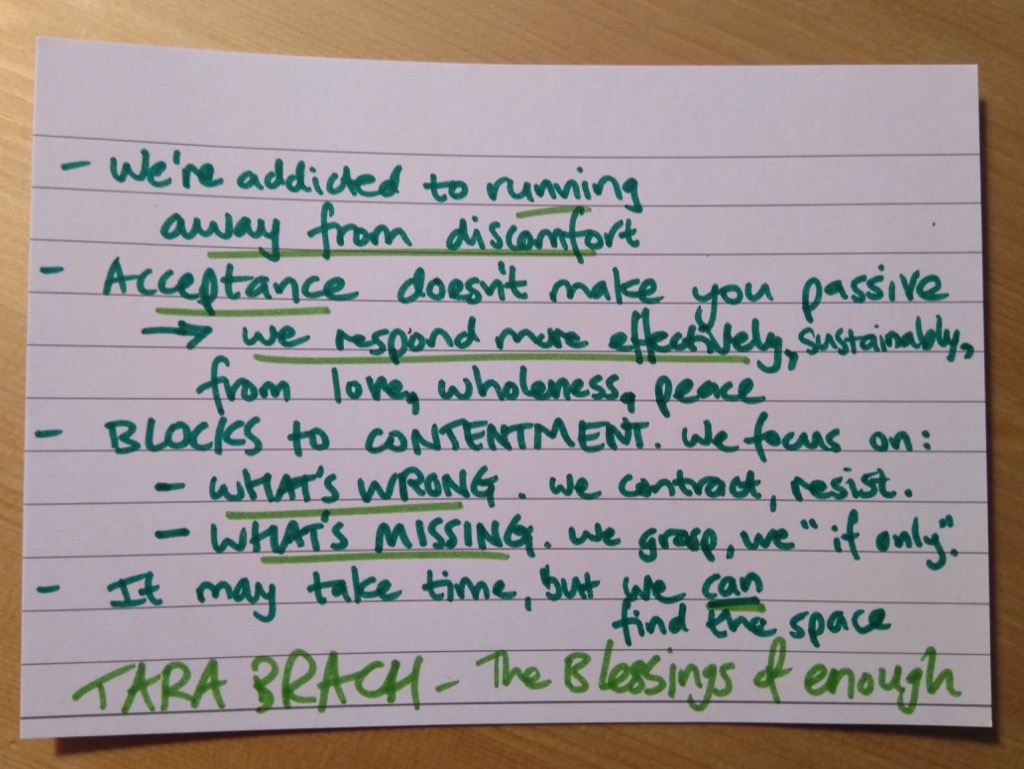 - We're addicted to running
away from discomfort
- Acceptance doesn't make you passive
→ we respond more effectively, sustainably,
from love, wholeness, peace
- BLOCKS to CONTENTMENT. We focus on:
- WHAT'S WRONG. We contract, resist.
- WHAT'S MISSING. We grasp, we "if only".
- It may take time, but we can
find the space
TARA BRACH - The Blessings of enough